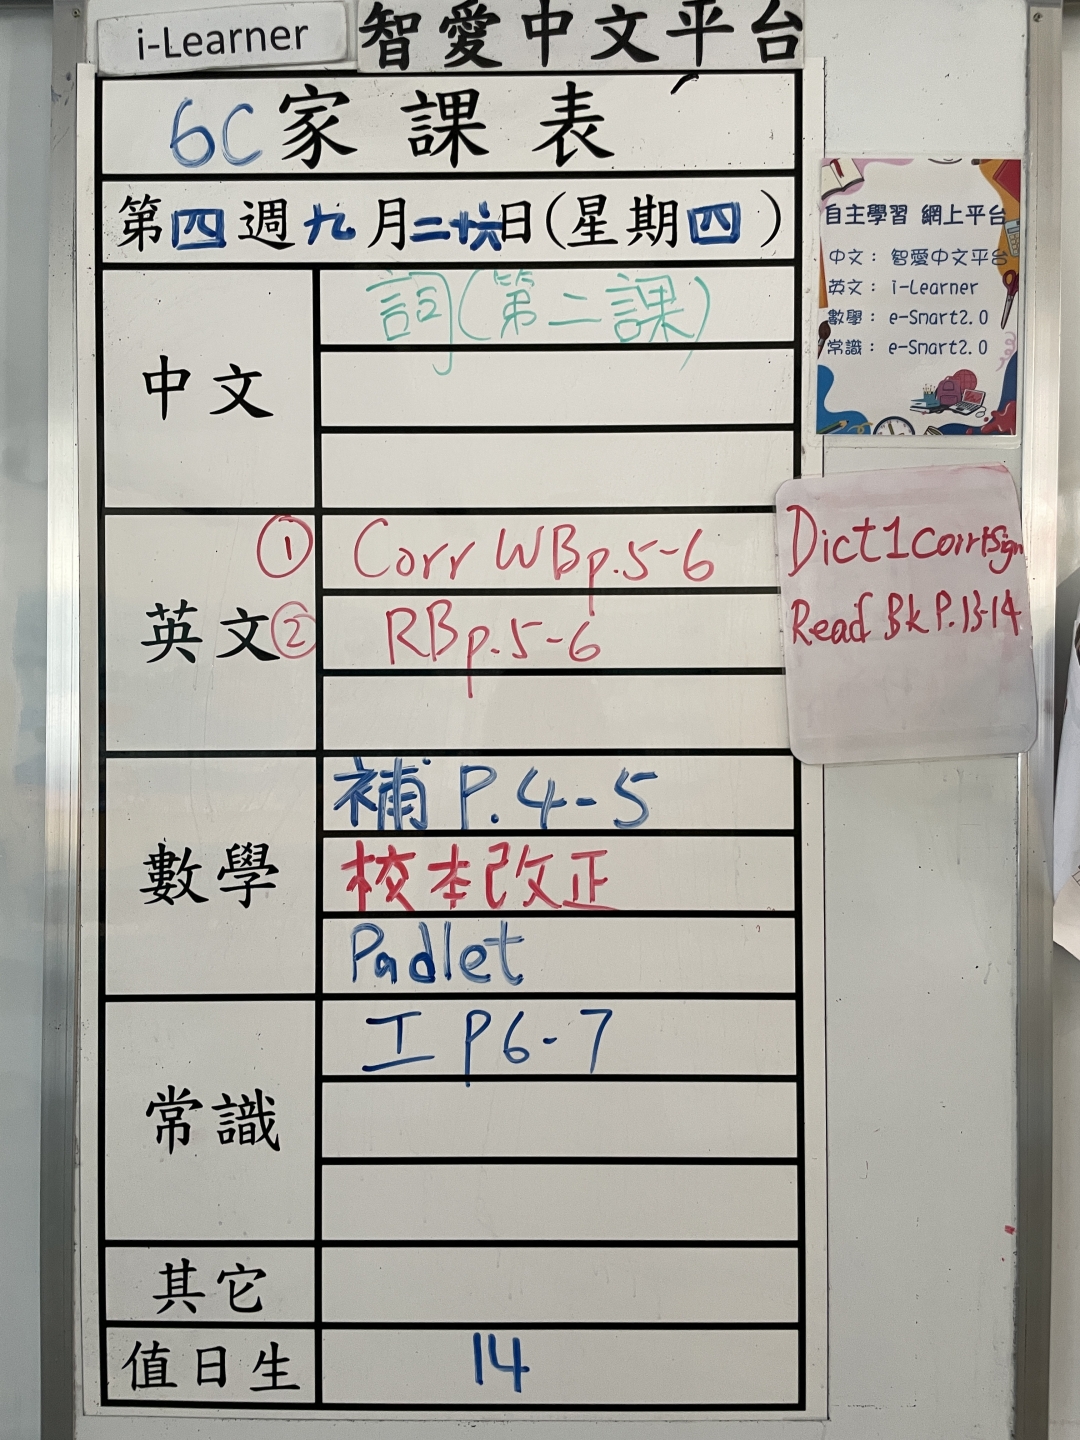 i-Learner 智愛中文平台
6C家課表
第四週九月二十六日(星期四)
自主學習 網上平台
中文： 智愛中文平台
英文： i-Learner
數學： e-Smart2.0
常識： e-Smart2.0
中文
詞(第二課)
英文
① Corr WBp.5-6
② RBp.5-6
Dict1corr+Sign
Read Bk P.13-14
數學
補 P.4-5
校本改正
Padlet
常識
工 P6-7
其它
值日生
14